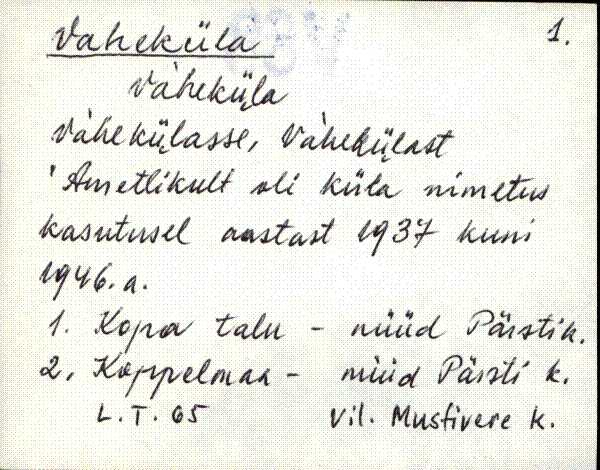 Vaheküla 1.
Vàheküla
Vàhekülasse, Vàhekülast
'Ametlikult oli küla nimetus
kasutusel aastast 1937 kuni
1946.a.
1. Kopa talu - nüüd Pärsti k.
2. Koppelmaa - nüüd Pärsti k.
L.T. 65 Vil. Mustivere k.